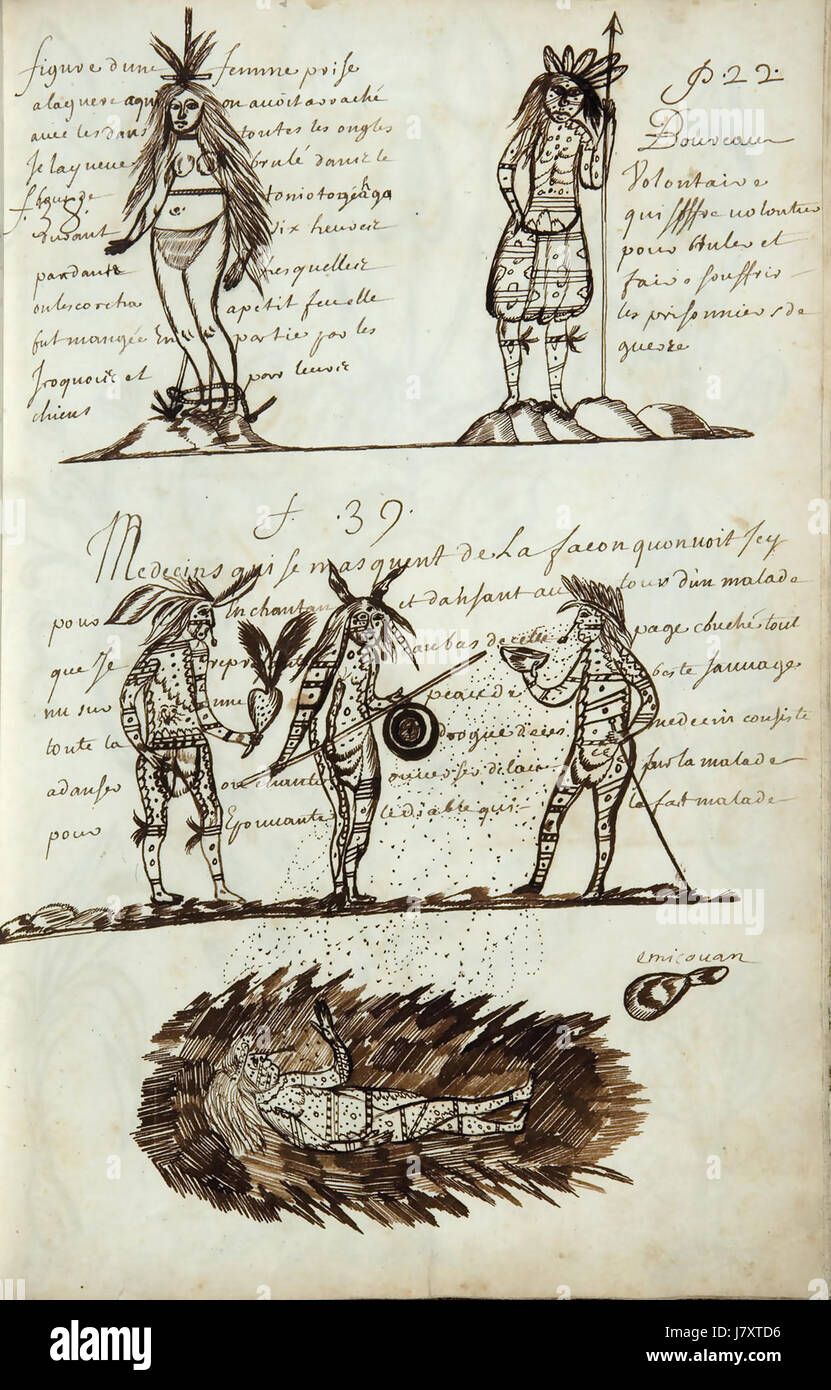 figure dune femme prise
alaguere aqui on avoit arraché
avec les dans toutes les ongles
Je lay veue brulé dans le
f bourg de toniotogéhaga
durant six heures
pandant lesquelles
on lescorcha apetit feu elle
fut mangée En partie par les
Jroquois et par leurs
chiens
P. 22.
Boureau
Volontaire
qui soffre volontier
pour bruler et
faire souffrir
les prisonniers de
guerre
f. 39.
Medecins qui se masquent de la facon quon voit Jcy
pour Enchantan et dansant autour d'un malade
que Je represente au bas de cette page couché tout
nu sur une peau de beste sauvage
toute la drogue de ces medecin consiste
a danser ou chanter ou verser de leau sur la malade
pour Epouvante le diable qui le fait malade
emicouan
alamy
J7XTD6